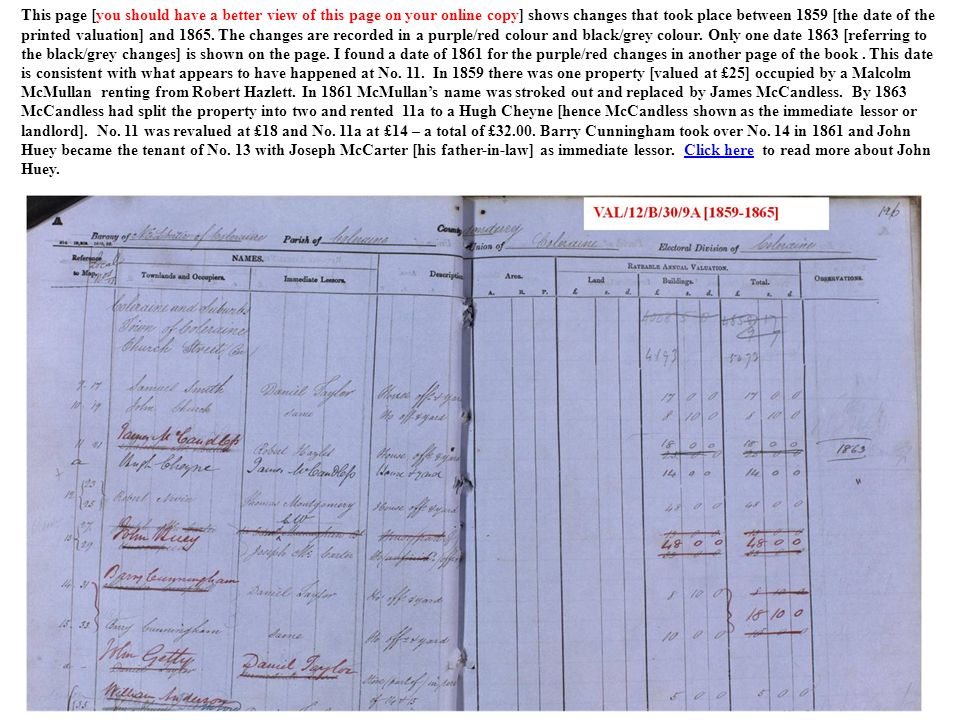 This page [you should have a better view of this page on your online copy] shows changes that took place between 1859 [the date of the
printed valuation] and 1865. The changes are recorded in a purple/red colour and black/grey colour. Only one date 1863 [referring to
the black/grey changes] is shown on the page. I found a date of 1861 for the purple/red changes in another page of the book . This date
is consistent with what appears to have happened at No. 11. In 1859 there was one property [valued at £25] occupied by a Malcolm
McMullan renting from Robert Hazlett. In 1861 McMullan's name was stroked out and replaced by James McCandless. By 1863
McCandless had split the property into two and rented 11a to a Hugh Cheyne [hence McCandless shown as the immediate lessor or
landlord]. No. 11 was revalued at £18 and No. 11a at £14 – a total of £32.00. Barry Cunningham took over No. 14 in 1861 and John
Huey became the tenant of No. 13 with Joseph McCarter [his father-in-law] as immediate lessor. Click here to read more about John
Huey.
VAL/12/B/30/9A [1859-1865]
A
196
Barony of Coleraine Parish of Coleraine County Union of Coleraine Electoral Division of Coleraine
Reference to Map. NAMES. Description Area. RATEABLE ANNUAL VALUATION. OBSERVATIONS.
Townlands and Occupiers. Immediate Lessors. Land Buildings. Total.
A. R. P. £ s. d. £ s. d. £ s. d.
Coleraine and Suburbs
Town of Coleraine
Church Street
4893 5073
9 17 Samuel Smith Daniel Taylor House off & yard 17 0 0 17 0 0
10 19 John Church same Ho off & yard 8 10 0 8 10 0
11 21 James McCandless Robert Hazlet House off & yard 18 0 0 18 0 0 1863
a Hugh Cheyne James McCandless House & yard 14 0 0 14 0 0
12 23 25 Robert Nevin Thomas Montgomery House off & yard 48 0 0 48 0 0
13 27 29 John Huey Joseph McCarter 48 0 0 48 0 0
14 31 Barry Cunningham Daniel Taylor Ho off & yard 8 10 0 8 10 0
18 10 0
15 33 Barry Cunningham same Ho off & yard 10 0 0
a John Getty Daniel Taylor Store (part of) in rere
of 14 & 15
35 William Anderson 5 0 0 5 0 0